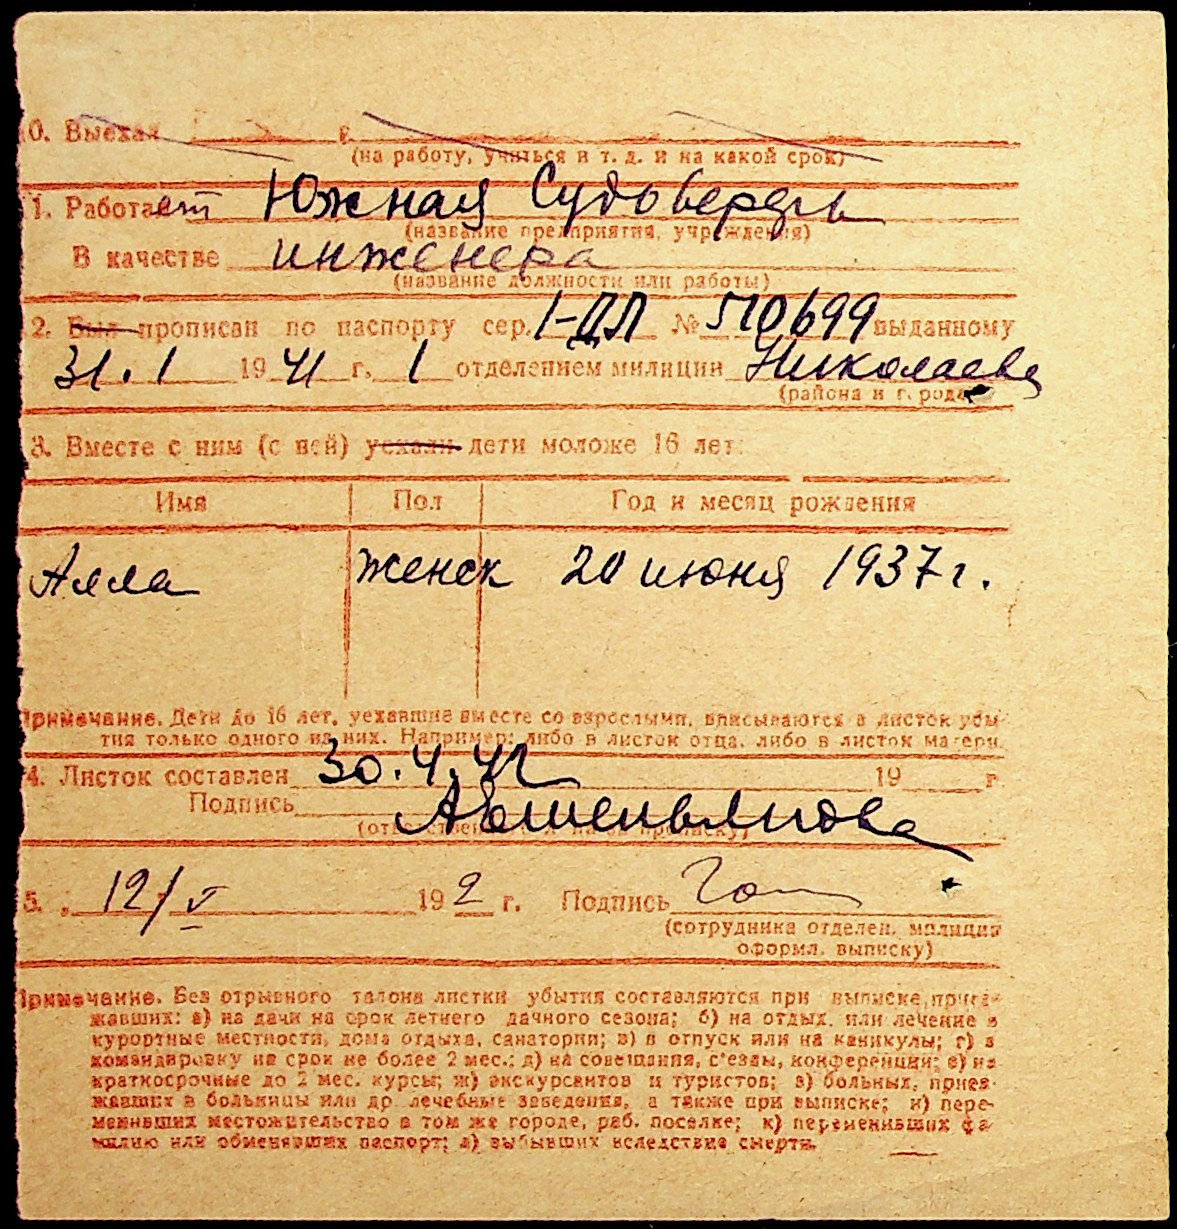 0. Выехал г.
(на работу, учиться и т. д. и на какой срок)
1. Работает Южная Судоверфь
(название предприятия, учреждения)
В качестве инженера
(название должности или работы)
2. Был прописан по паспорту сер. I-ДЛ № 510699 выданному
31.1 1941 г. 1 отделением милиции Николаева
(района и города)
3. Вместе с ним (с ней) уехали дети моложе 16 лет:
Имя Пол Год и месяц рождения
Алла женск 20 июня 1937 г.
Примечание. Дети до 16 лет, уехавшие вместе со взрослыми, вписываются в листок убы-
тия только одного из них. Например: либо в листок отца, либо в листок матери.
4. Листок составлен 30.4.42 19 г.
Подпись
(ответственн. прописку)
5. 12/V 192 г. Подпись
(сотрудника отделен. милиции
оформл. выписку)
Примечание. Без отрывного талона листки убытия составляются при выписке, приез-
жавших: а) на дачи на срок летнего дачного сезона; б) на отдых или лечение в
курортные местности, дома отдыха, санатории; в) в отпуск или на каникулы; г) в
командировку на срок не более 2 мес.; д) на совещания, с'езды, конференции; е) на
краткосрочные до 2 мес. курсы; ж) экскурсантов и туристов; з) больных, приез-
жавших в больницы или др. лечебные заведения, а также при выписке; и) пере-
менивших местожительство в том же городе, раб. поселке; к) переменивших фа-
милию или обменявших паспорт; л) выбывших вследствие смерти.